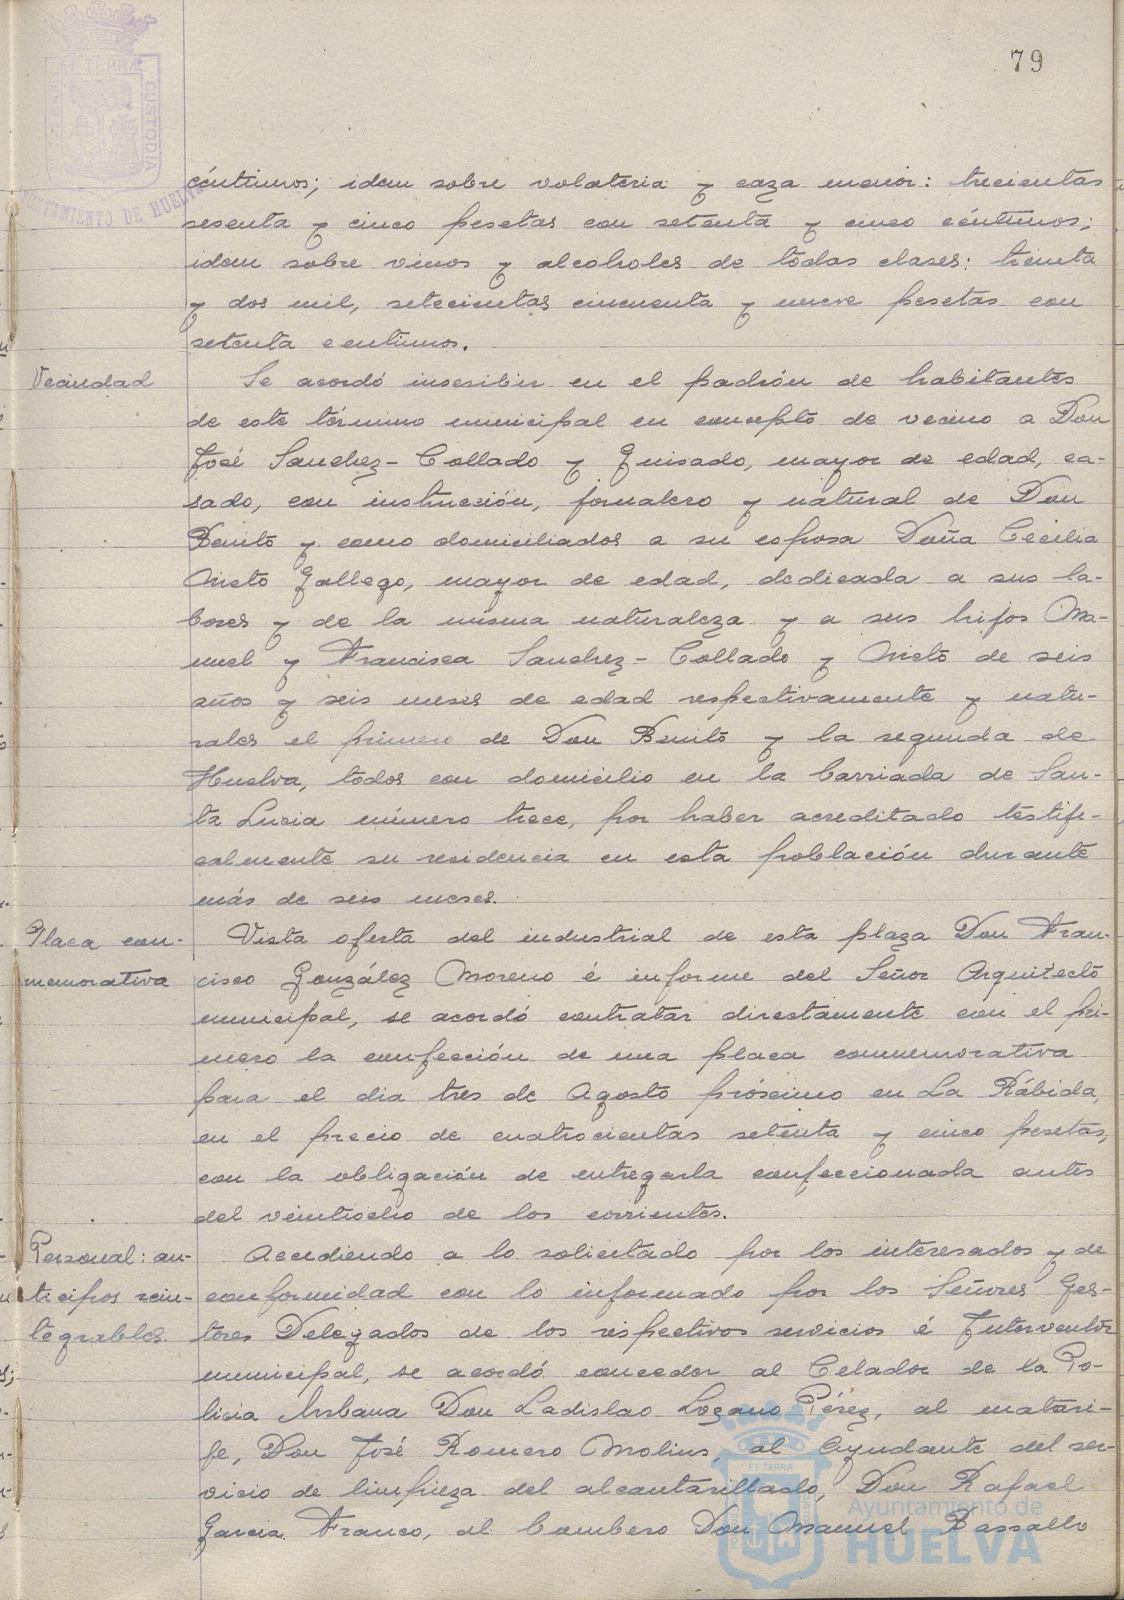 79
céntimos; idem sobre volateria y caza menor: trecientas
sesenta y cinco pesetas con setenta y cinco céntimos;
idem sobre vinos y alcoholes de todas clases: treinta
y dos mil, setecientas cincuenta y nueve pesetas con
setenta centimos.
Vecindad
Se acordó inscribir en el padrón de habitantes
de este término municipal en concepto de vecino a Don
José Sanchez-Collado y Guisado, mayor de edad, ca-
sado, con instrucción, jornalero y natural de Don
Benito y como domiciliados a su esposa Doña Cecilia
Nieto Gallego, mayor de edad, dedicada a sus la-
bores y de la misma naturaleza y a sus hijos Ma-
nuel y Francisca Sanchez-Collado y Nieto de seis
años y seis meses de edad respectivamente y natu-
rales el primero de Don Benito y la segunda de
Huelva, todos con domicilio en la barriada de San-
ta Lucia número trece, por haber acreditado testifi-
calmente su residencia en esta población durante
más de seis meses.
Placa con-
memorativa
Vista oferta del industrial de esta plaza Don Fran-
cisco González Moreno é informe del Señor Arquitecto
municipal, se acordó contratar directamente con el pri-
mero la confección de una placa conmemorativa
para el dia tres de Agosto próximo en La Rábida,
en el precio de cuatrocientas setenta y cinco pesetas,
con la obligación de entregarla confeccionada antes
del veintiocho de los corrientes.
Personal: an-
ticipos rein-
tegrables.
Accediendo a lo solicitado por los interesados y de
conformidad con lo informado por los Señores Ges-
tores Delegados de los respectivos servicios é Interventor
municipal, se acordó conceder al Celador de la Po-
licia Urbana Don Ladislao Lozano Pérez, al matari-
fe, Don José Romero Molins, al Ayudante del ser-
vicio de limpieza del alcantarillado, Don Rafael
Garcia Franco, al bombero Don Manuel Bassallo
ET TERRÆ
CUSTODIA
AYUNTAMIENTO DE HUELVA
ET TERRÆ
Ayuntamiento de
HUELVA